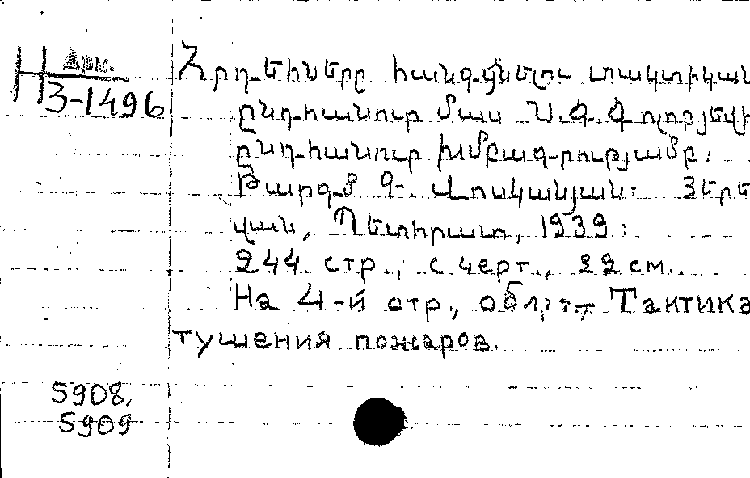 Арм.
Н 3-1496
Հրդեհները հանգցնելու տակտիկան
ընդհանուր մաս Ն. Գ.
ընդհանուր խմբագրությամբ:
Թարգմ Գ. Վոսկանյան: Յերե
վան, Պետհրատ, 1939:
244 стр., с черт., 22 см.
На 4-й стр., обл.: Тактика
тушения пожаров.
5908,
5909